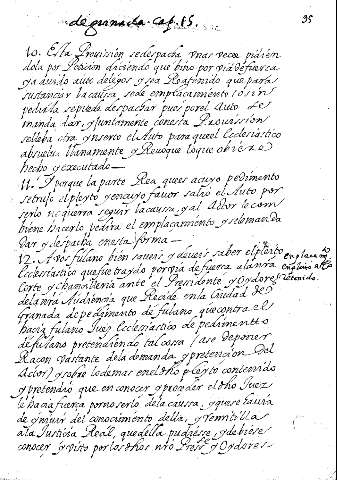 de granada. Cap. 15.
35
10. Esta Provission sedespacha unas veces pidien
dola por Peticion diciendo que vino por via de fuerza
y a avido auto de legos y sea Retenido que para
sustanciar la causa, sede emplacamiento, o sin
pedirla se puede despachar pues por el Auto se
manda dar, y juntamente con esta Provission
se lleba otra ynserto el Auto para que el Ecclesiastico
absuelva llanamente y Revoque lo que obiere
hecho y executado
11. I porque la parte Rea, que es a cuyo pedimento
se trujo el pleyto y en cuyo favor salio el Auto por
serlo no querra seguir la caussa, y al Actor le com
biene hacerlo, pedira el emplacamiento, y se le manda
dar y despacha en esta forma
12. A vos fulano bien saveis y deveis saber el pleito
Ecclesiastico que fue traydo por via de fuerza a la nra
Corte y Chancilleria ante el Presidente y Oydores
de la nra Audiencia que Reside en la Ciudad de
Granada de pedimento de fulano, que contra el
hacia fulano Juez Ecclesiastico de pedimento
de fulano pretendiendo tal cosa (ase de poner
Racon bastante de la demanda y pretencion del
Actor) y sobre lo demas en el dho pleyto contenido
y pretendio que en conocer y proceder el dho Juez
le hacia fuerza por no ser lo de la caussa, y que se tavia
de ynivir del conocimiento della, y remitilla
a la Justicia Real, que della pudiesse, y debiese
conocer, y visto por los dhos nro Press.te y Oydores